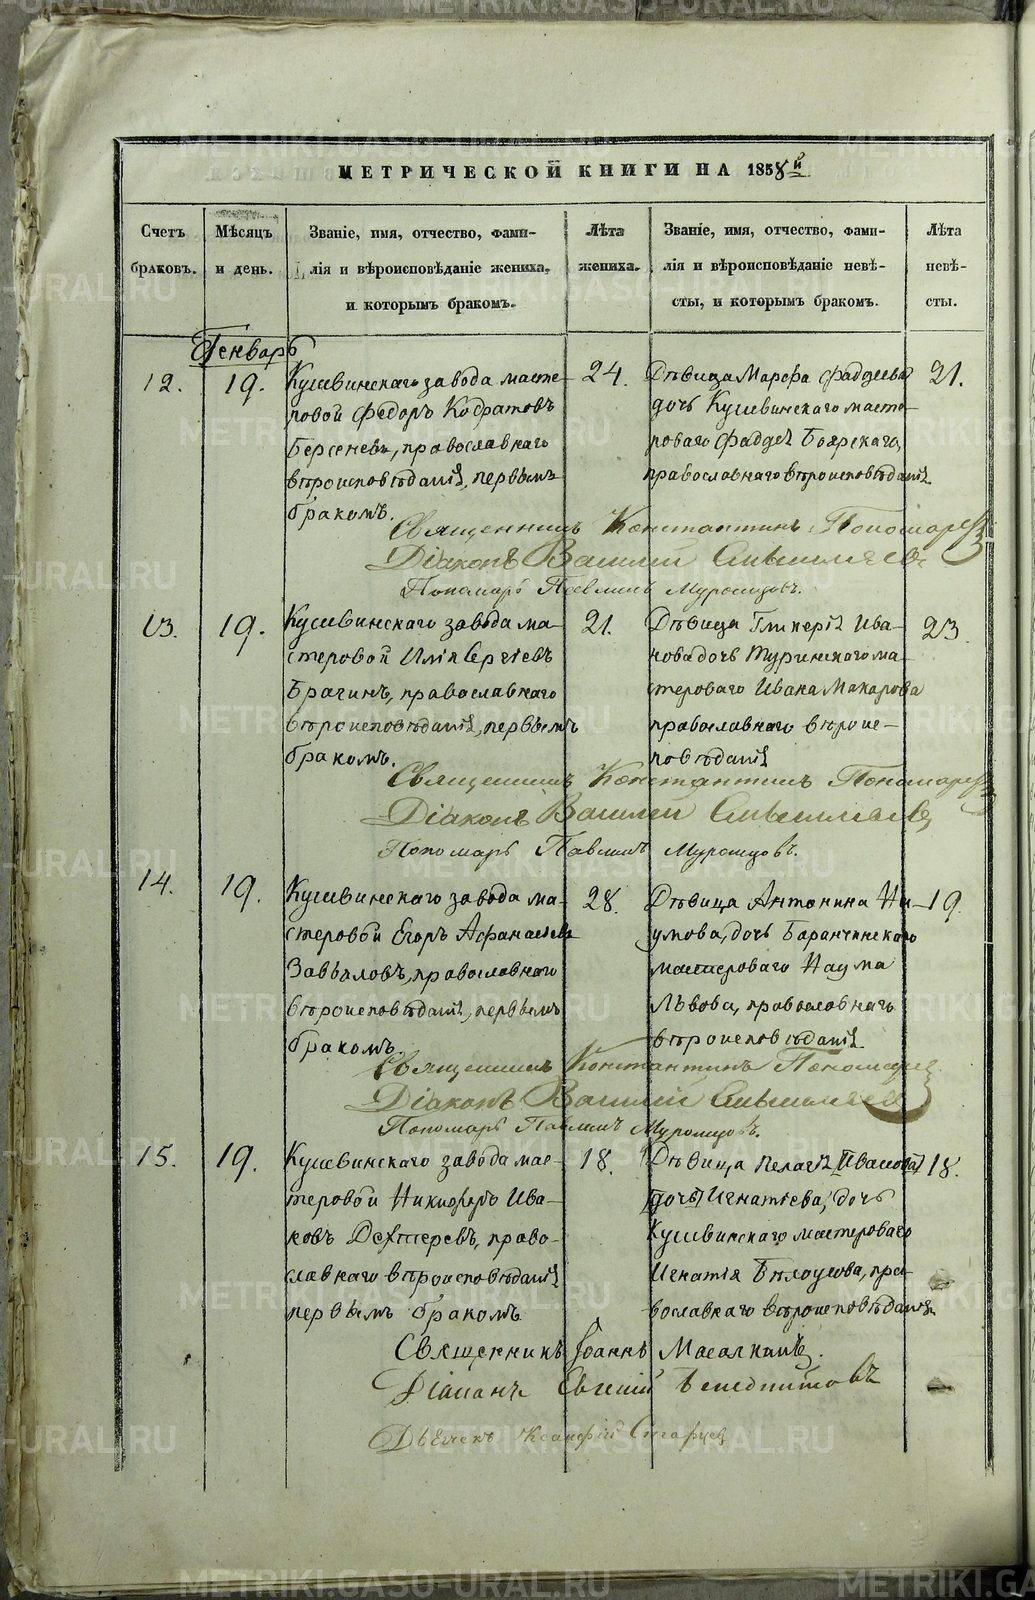 МЕТРИЧЕСКОЙ КНИГИ НА 1858й
Счетъ браковъ.
Мѣсяцъ и день.
Званіе, имя, отчество, фами-
лія и вѣроисповѣданіе жениха,
и которымъ бракомъ.
Лѣта жениха.
Званіе, имя, отчество, фами-
лія и вѣроисповѣданіе невѣ-
сты, и которымъ бракомъ.
Лѣта невѣ-
сты.
Генварь
12.
19.
Кушвинскаго завода масте-
ровой Федоръ Кодратовъ
Берсеневъ, православнаго
вѣроисповѣданія, первымъ
бракомъ.
24.
Дѣвица Марфа Фадѣева
дочь Кушвинскаго масте-
роваго Фаддея Боярскаго,
православнаго вѣроисповѣданія
21.
Священникъ Константинъ Пономаревъ
Діаконъ Василий
Пономарь Павлинъ Муромцовъ.
13.
19.
Кушвинскаго завода ма-
стеровой Илія Сергіевъ
Брагинъ, православнаго
вѣроисповѣданія, первымъ
бракомъ.
21.
Дѣвица Гликерія Ива-
нова дочь Туринскаго ма-
стероваго Ивана Макарова
православнаго вѣроис-
повѣданія
23.
Священникъ Константинъ Пономаревъ
Діаконъ Василий
Пономарь Павлинъ Муромцовъ.
14.
19.
Кушвинскаго завода ма-
стеровой Егоръ Афанасьевъ
Завьяловъ, православнаго
вѣроисповѣданія, первымъ
бракомъ.
28.
Дѣвица Антонина На-
умова, дочь Баранчинскаго
мастероваго Наума
Львова, православнаго
вѣроисповѣданія
19.
Священникъ Константинъ Пономарев
Діаконъ Василий
Пономарь Павлинъ Муромцовъ.
15.
19.
Кушвинскаго завода мас-
теровой Никифоръ Ива-
новъ Дехтеревъ, право-
славнаго вѣроисповѣданія
первымъ бракомъ
18.
Дѣвица Пелагія (Иванова)
(дочь) Игнатіева, дочь
Кушвинскаго мастероваго
Игнатія Бѣлоусова, пра-
вославнаго вѣроисповѣданія.
18.
Священникъ Іоаннъ
Діаконъ Евгеній
Дьячекъ Ксанфій Старцев
METRIKI.GASO-URAL.RU